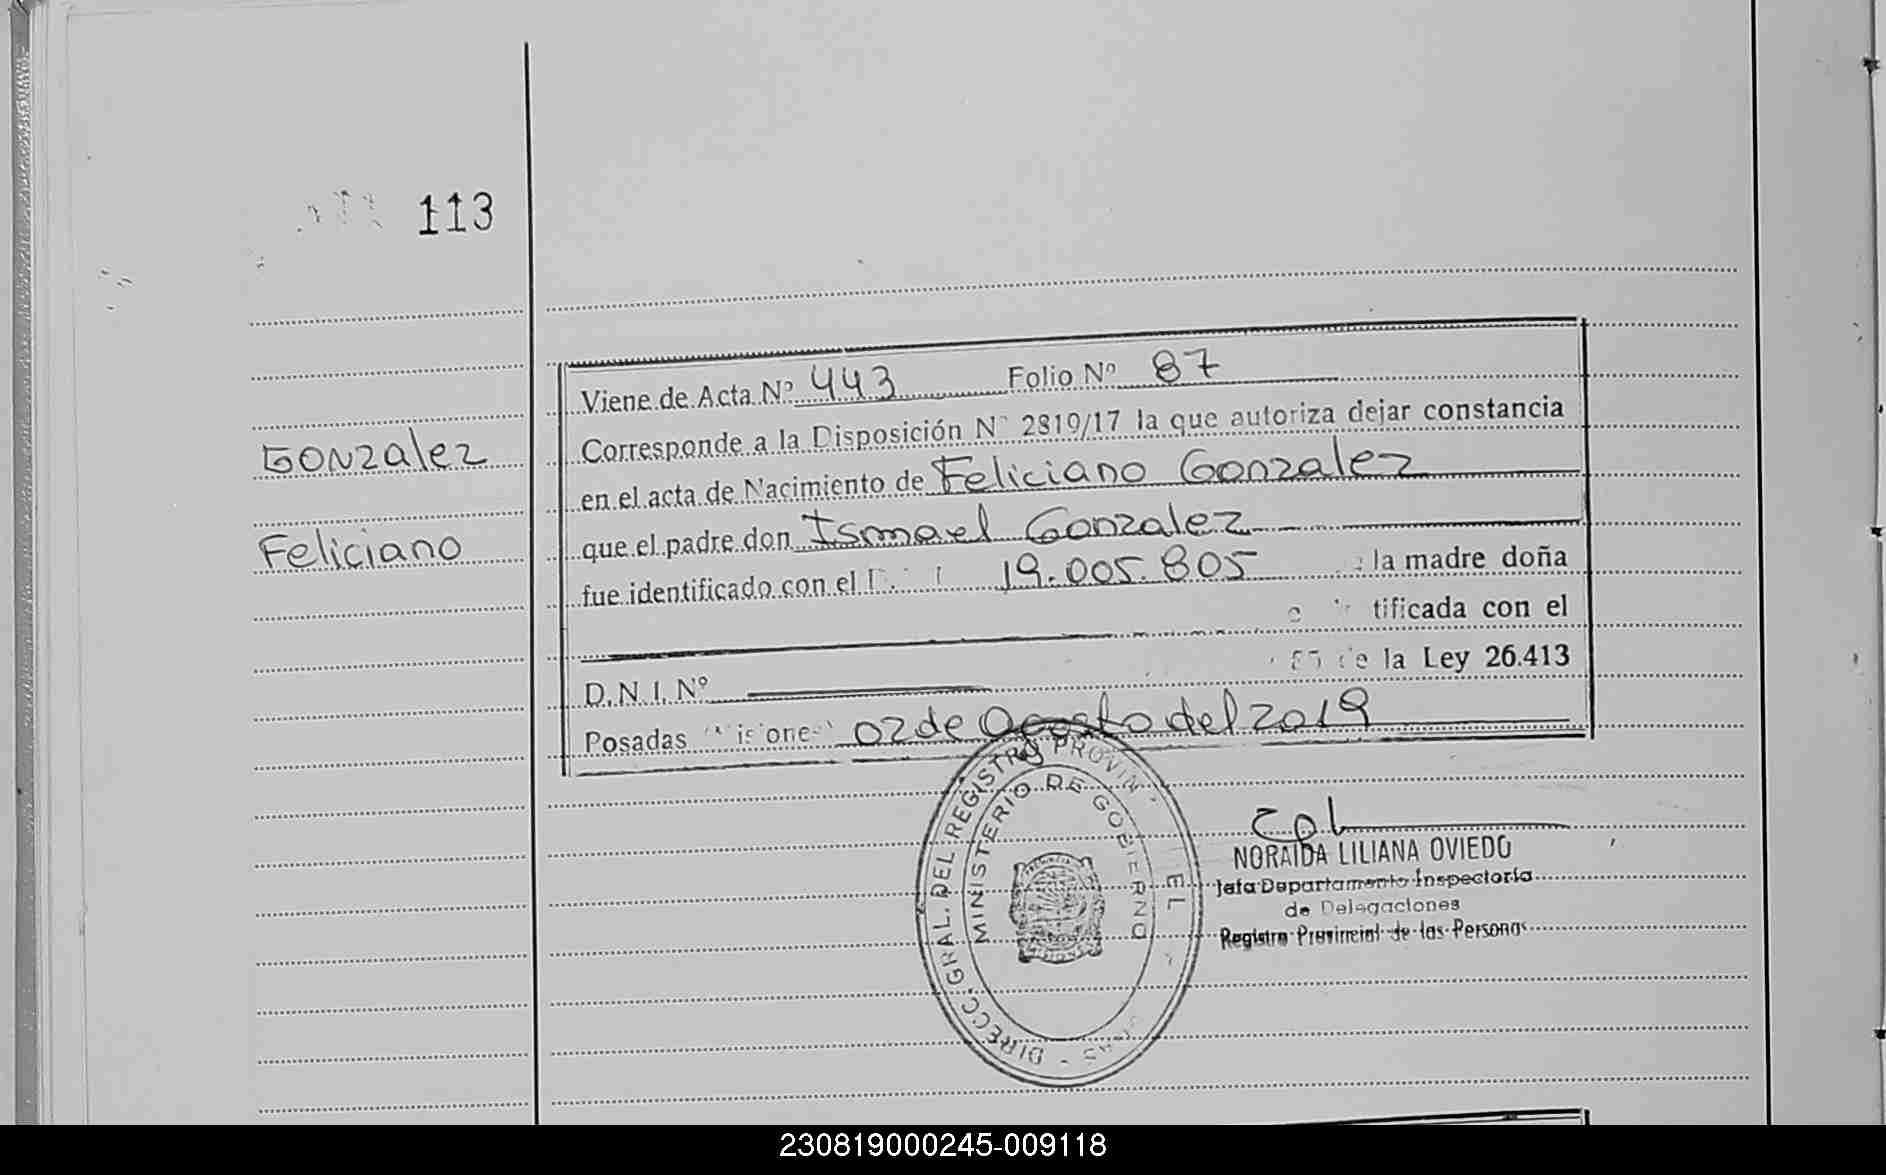 113
Viene de Acta Nº 443 Folio Nº 87
Corresponde a la Disposición Nº 2819/17 la que autoriza dejar constancia
Gonzalez
en el acta de Nacimiento de Feliciano Gonzalez
que el padre don Ismael Gonzalez
Feliciano
fue identificado con el 19.005.805 la madre doña
tificada con el
de la Ley 26.413
D.N.I. Nº
Posadas 02 de Agosto del 2019
DIRECC. GRAL. DEL REGISTRO PROVIN
MINISTERIO DE GOBIERNO
NORAIDA LILIANA OVIEDO
Jefa Departamento Inspectoría
de Delegaciones
Registro Provincial de las Personas
230819000245-009118